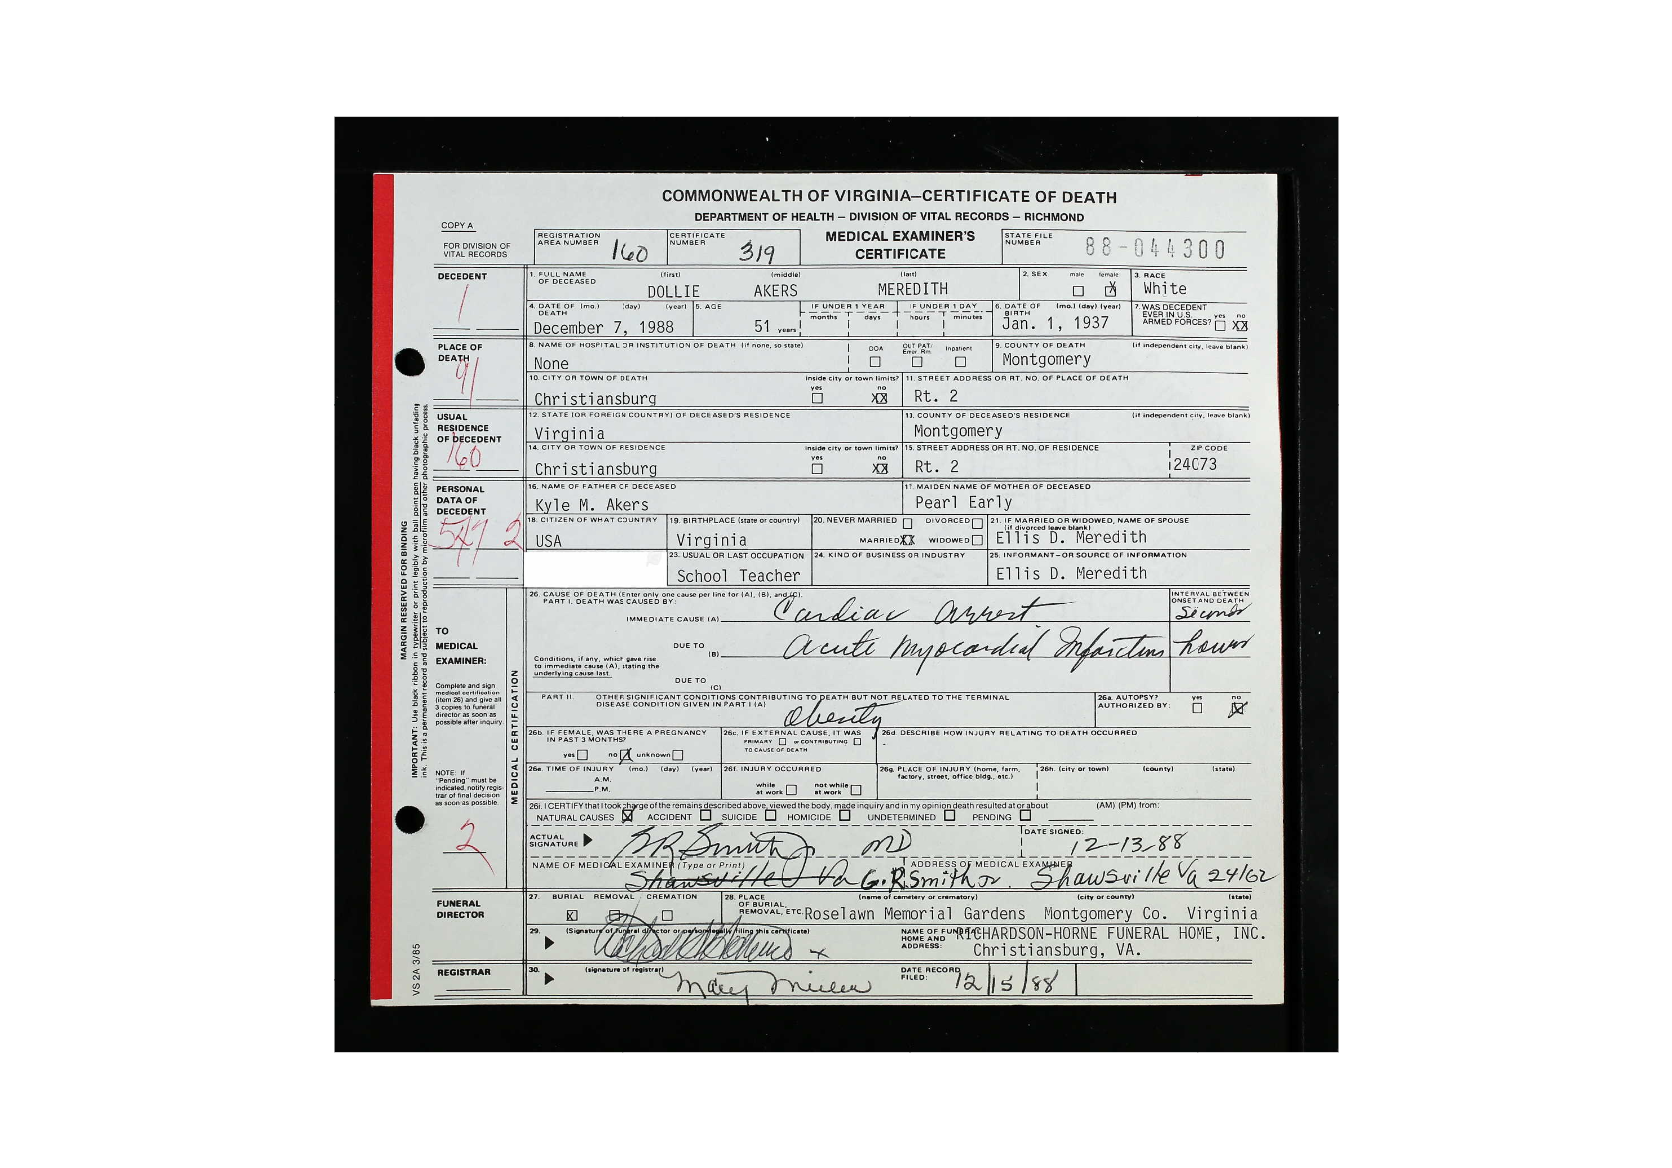 COMMONWEALTH OF VIRGINIA—CERTIFICATE OF DEATH
DEPARTMENT OF HEALTH – DIVISION OF VITAL RECORDS – RICHMOND
COPY A
FOR DIVISION OF VITAL RECORDS
REGISTRATION AREA NUMBER 160
CERTIFICATE NUMBER 319
MEDICAL EXAMINER'S CERTIFICATE
STATE FILE NUMBER 88-044300
DECEDENT
1
1. FULL NAME OF DECEASED (first) (middle) (last)
DOLLIE AKERS MEREDITH
2. SEX male female X
3. RACE White
4. DATE OF DEATH (mo.) (day) (year) December 7, 1988
5. AGE 51 years
IF UNDER 1 YEAR months days
IF UNDER 1 DAY hours minutes
6. DATE OF BIRTH (mo.) (day) (year) Jan. 1, 1937
7. WAS DECEDENT EVER IN U.S. ARMED FORCES? yes no XX
PLACE OF DEATH
91
8. NAME OF HOSPITAL OR INSTITUTION OF DEATH (if none, so state) None
DOA OUT PAT/ Emer. Rm. Inpatient
9. COUNTY OF DEATH (if independent city, leave blank) Montgomery
10. CITY OR TOWN OF DEATH Christiansburg
inside city or town limits? yes no XX
11. STREET ADDRESS OR RT. NO. OF PLACE OF DEATH Rt. 2
USUAL RESIDENCE OF DECEDENT
160
12. STATE (OR FOREIGN COUNTRY) OF DECEASED'S RESIDENCE Virginia
13. COUNTY OF DECEASED'S RESIDENCE (if independent city, leave blank) Montgomery
14. CITY OR TOWN OF RESIDENCE Christiansburg
inside city or town limits? yes no XX
15. STREET ADDRESS OR RT. NO. OF RESIDENCE Rt. 2
ZIP CODE 24073
PERSONAL DATA OF DECEDENT
16. NAME OF FATHER OF DECEASED Kyle M. Akers
17. MAIDEN NAME OF MOTHER OF DECEASED Pearl Early
18. CITIZEN OF WHAT COUNTRY USA
19. BIRTHPLACE (state or country) Virginia
20. NEVER MARRIED DIVORCED MARRIED XX WIDOWED
21. IF MARRIED OR WIDOWED, NAME OF SPOUSE (if divorced leave blank) Ellis D. Meredith
23. USUAL OR LAST OCCUPATION School Teacher
24. KIND OF BUSINESS OR INDUSTRY
25. INFORMANT – OR SOURCE OF INFORMATION Ellis D. Meredith
MARGIN RESERVED FOR BINDING
IMPORTANT: Use black ribbon in typewriter or print legibly with ball point pen having black unfading
ink. This is a permanent record and subject to reproduction by microfilm and other photographic process.
TO MEDICAL EXAMINER:
Complete and sign medical certification (item 26) and give all 3 copies to funeral director as soon as possible after inquiry.
NOTE: If "Pending" must be indicated, notify registrar of final decision as soon as possible.
2
MEDICAL CERTIFICATION
26. CAUSE OF DEATH (Enter only one cause per line for (A), (B), and (C).
PART I. DEATH WAS CAUSED BY:
INTERVAL BETWEEN ONSET AND DEATH
IMMEDIATE CAUSE (A) Cardiac Arrest Seconds
DUE TO (B) Acute Myocardial Infarction hours
Conditions, if any, which gave rise to immediate cause (A), stating the underlying cause last.
DUE TO (C)
PART II. OTHER SIGNIFICANT CONDITIONS CONTRIBUTING TO DEATH BUT NOT RELATED TO THE TERMINAL DISEASE CONDITION GIVEN IN PART I (A)
Obesity
26a. AUTOPSY? AUTHORIZED BY: yes no X
26b. IF FEMALE, WAS THERE A PREGNANCY IN PAST 3 MONTHS? yes no X unknown
26c. IF EXTERNAL CAUSE, IT WAS PRIMARY or CONTRIBUTING TO CAUSE OF DEATH
26d DESCRIBE HOW INJURY RELATING TO DEATH OCCURRED
26e. TIME OF INJURY (mo.) (day) (year) A.M. P.M.
26f. INJURY OCCURRED while at work not while at work
26g. PLACE OF INJURY (home, farm, factory, street, office bldg., etc.)
26h. (city or town) (county) (state)
26i. I CERTIFY that I took charge of the remains described above, viewed the body, made inquiry and in my opinion death resulted at or about (AM) (PM) from:
NATURAL CAUSES X ACCIDENT SUICIDE HOMICIDE UNDETERMINED PENDING
ACTUAL SIGNATURE GR Smith Jr MD
DATE SIGNED: 12-13-88
NAME OF MEDICAL EXAMINER (Type or Print) Shawsville Va G.R. Smith Jr.
ADDRESS OF MEDICAL EXAMINER Shawsville Va 24162
FUNERAL DIRECTOR
27. BURIAL REMOVAL CREMATION X
28. PLACE OF BURIAL, REMOVAL, ETC. (name of cemetery or crematory) (city or county) (state)
Roselawn Memorial Gardens Montgomery Co. Virginia
29. (Signature of funeral director or person legally filing this certificate)
NAME OF FUNERAL HOME AND ADDRESS: RICHARDSON-HORNE FUNERAL HOME, INC.
Christiansburg, VA.
REGISTRAR
30. (signature of registrar) Mary Miller
DATE RECORD FILED: 12/15/88
VS 2A 3/85